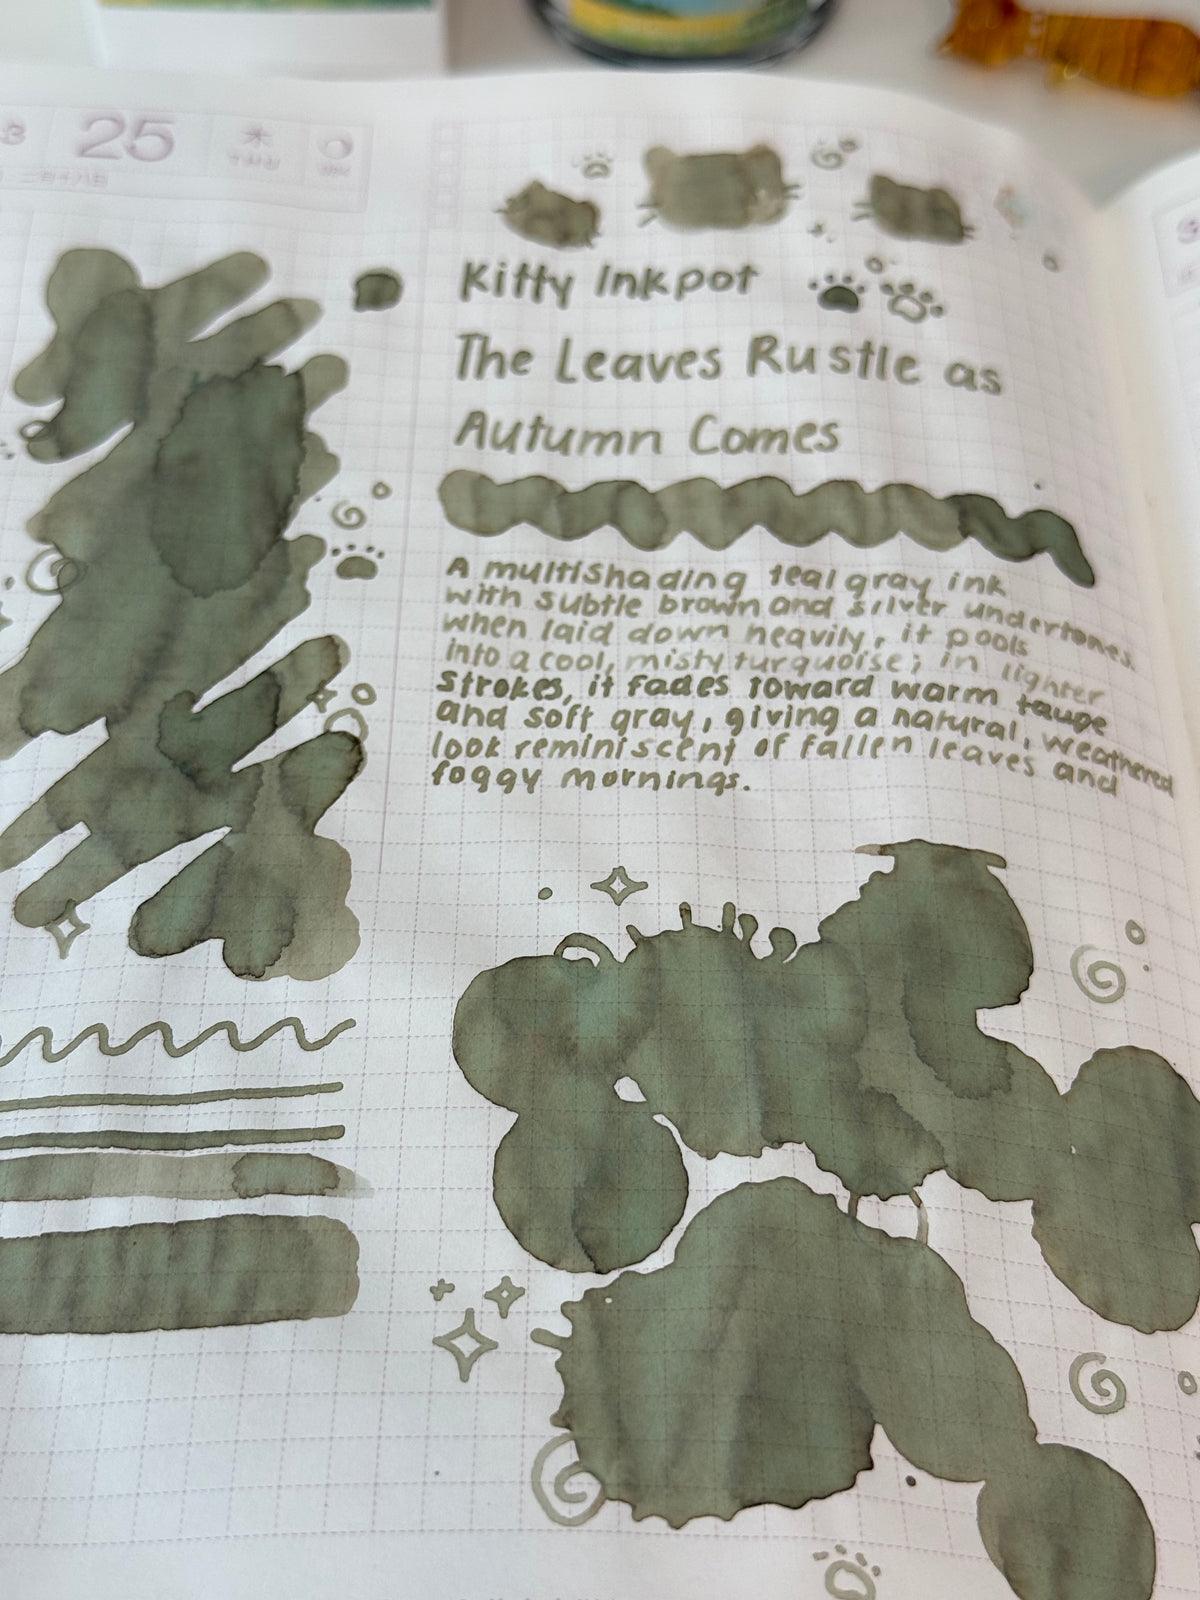 25 木
THU
二月十八日
Kitty Inkpot
The Leaves Rustle as
Autumn Comes
A multishading teal gray ink
with subtle brown and silver undertones.
when laid down heavily, it pools
into a cool, misty turquoise; in lighter
strokes, it fades toward warm taupe
and soft gray, giving a natural, weathered
look reminiscent of fallen leaves and
foggy mornings.